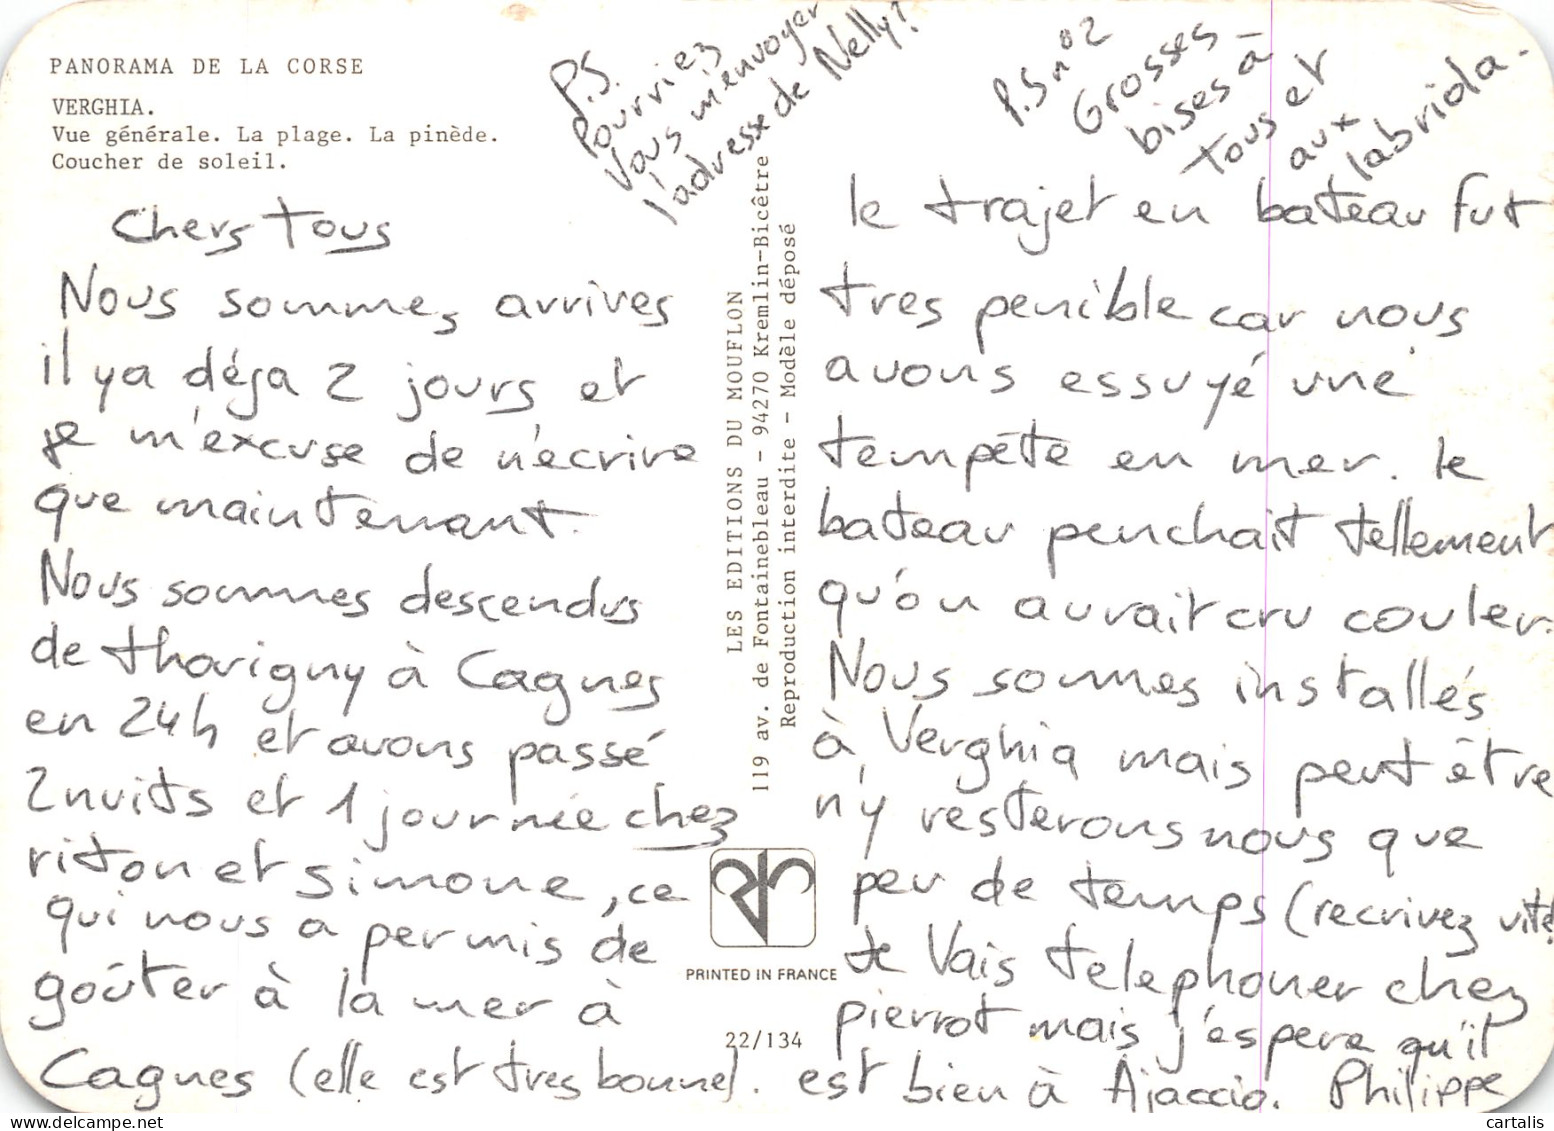 PANORAMA DE LA CORSE
VERGHIA.
Vue générale. La plage. La pinède.
Coucher de soleil.
Chers Tous
Nous sommes arrives
il ya déja 2 jours et
je m'excuse de n'ecrire
que maintenant.
Nous sommes descendus
de thorigny à Cagnes
en 24h et avons passé
2 nuits et 1 journée chez
riton et simone, ce
qui nous a permis de
goûter à la mer à
Cagnes (elle est tres bonne).
P.S.
Pourriez
vous m'envoyer
l'adresse de Nelly?
P.S n°2
Grosses
bises à
tous et
aux
labriola.
LES EDITIONS DU MOUFLON
119 av. de Fontainebleau - 94270 Kremlin-Bicêtre
Reproduction interdite - Modèle déposé
PRINTED IN FRANCE
22/134
le trajet en bateau fut
tres penible car nous
avons essuyé une
tempête en mer. le
bateau penchait tellement
qu'on aurait cru couler.
Nous sommes installés
à Verghia mais peut être
n'y resterons nous que
peu de temps (recrivez vite)
Je Vais telephoner chez
pierrot mais j'espere qu'il
est bien à Ajaccio. Philippe
cartalis